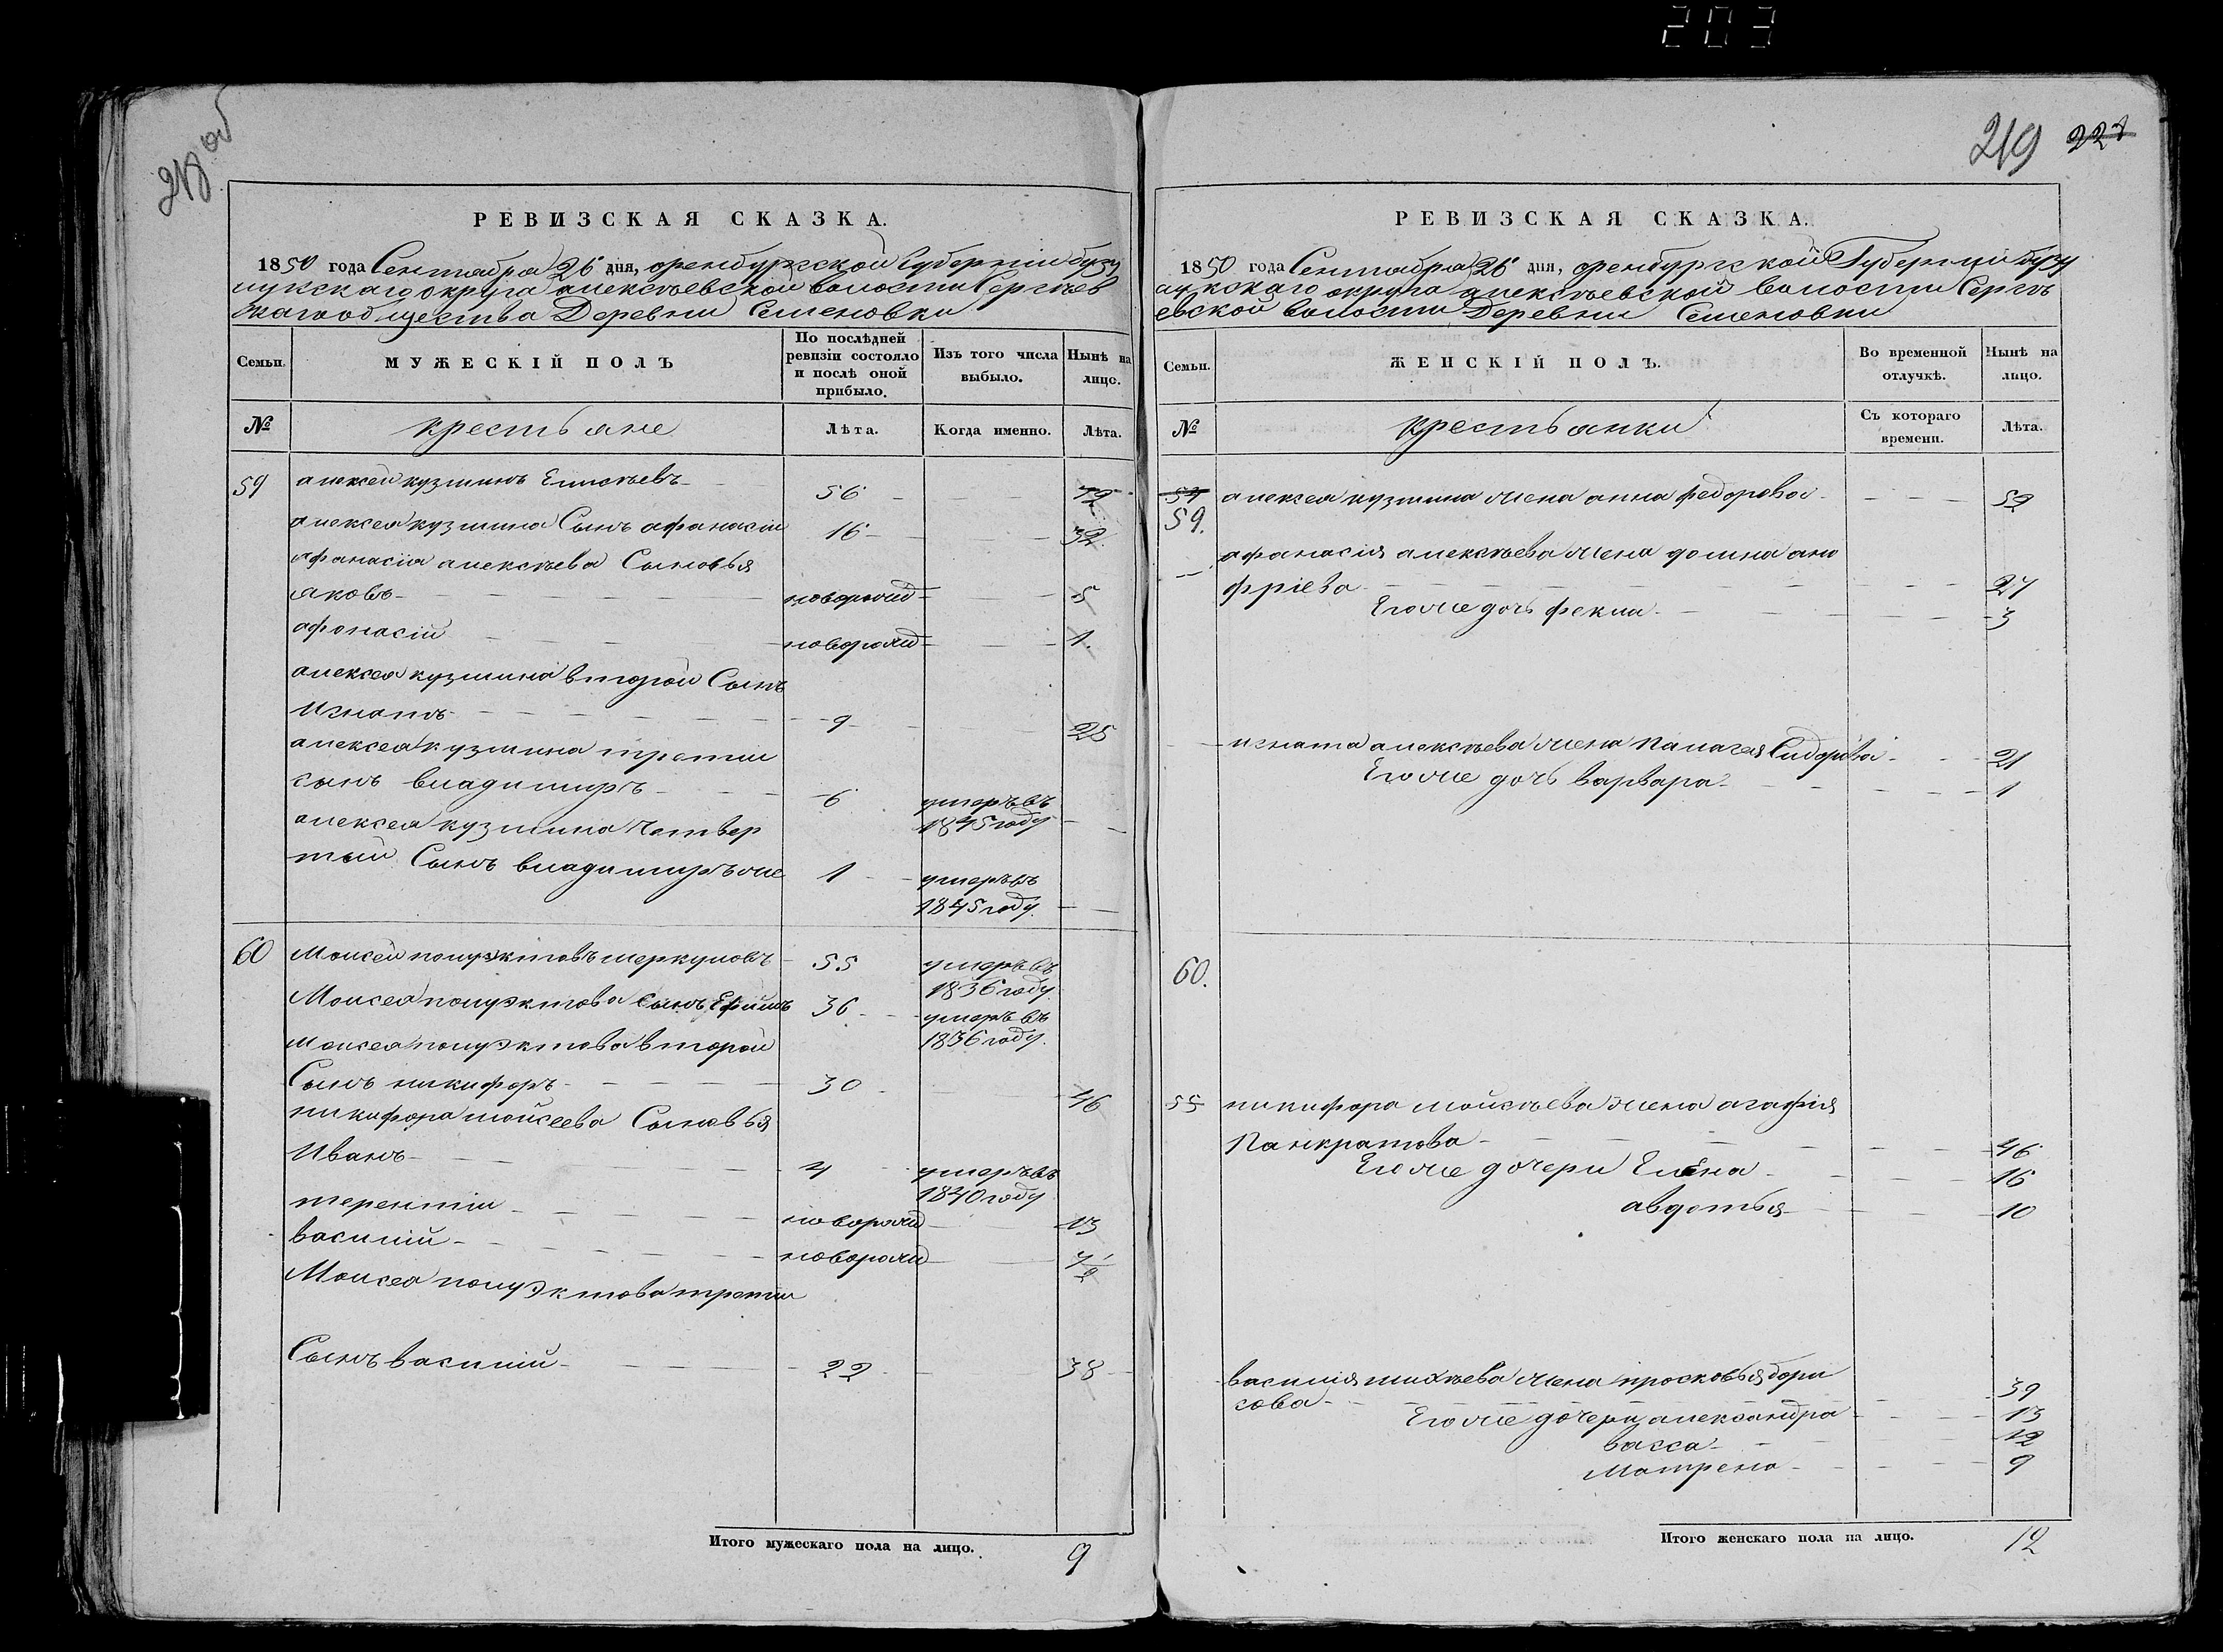 203
218 об
РЕВИЗСКАЯ СКАЗКА.
1850 года Сентября 26 дня, оренбургской Губернии бузу
лукскаго округа алексѣевской волости Сергѣев
скаго общества Деревни Семеновки
Семьи.
МУЖЕСКІЙ ПОЛЪ
По послѣдней
ревизіи состояло
и послѣ оной
прибыло.
Изъ того числа
выбыло.
Нынѣ на
лицо.
№
крестьяне
Лѣта.
Когда именно.
Лѣта.
59 алексей кузминъ Елисѣевъ 56 72
алексея кузмина Сынъ афанасiи 16 32
афанасiя алексѣева Сыновья
яковъ новорожд 5
афонасiй новорожд 1.
алексея кузмина второй Сынъ
Игнатъ 9 25
алексея кузмина третiи
сынъ владимиръ 6 умеръ въ
1845 году
алексея кузмина Четвер
тый Сынъ владимиръ же 1 умеръ въ
1845 году.
60 Моисей полуэктовъ меркуловъ 55 умеръ въ
1836 году.
Моисея полуэктова сынъ Ефимъ 36 умеръ въ
1836 году.
Моисея полуэктова второй
Сынъ никифоръ 30 46
никифора мойсеева Сыновья
Иванъ 4 умеръ въ
1840 году
терентiи новорожд 13
василiй новорожд 7 1/2
Моисея полуэктова третiи
Сынъ василiй 22 38
Итого мужескаго пола на лицо. 9
219 227
РЕВИЗСКАЯ СКАЗКА.
1850 года Сентября 26 дня, оренбургской Губернiи бузу
лукскаго округа алексѣевской волости Сергѣ
евской волости Деревни Семеновки
Семьи.
ЖЕНСКІЙ ПОЛЪ.
Во временной
отлучкѣ.
Нынѣ на
лицо.
№
крестьянки
Съ котораго
времени.
Лѣта.
54 алексея кузмина жена анна федорова 52
59.
афанасiя алексѣева жена домна ано
фрiева 27
Его же дочь фекла 3
игната алексѣева жена Палагея Сидорова 21
Его же дочь варвара 1
60.
55 никифора мойсѣева жена агафiя
Панкратова 46
Его же дочери Елена 16
авдотья 10
василiя жена просковья бори
сова 39
Его же дочери александра 13
васса 12
Матрена 9
Итого женскаго пола на лицо. 12